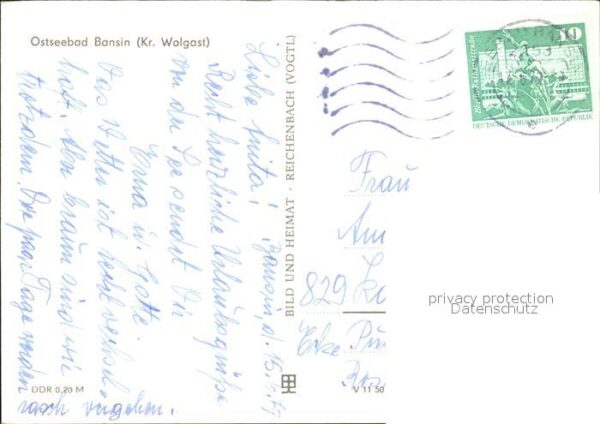 Ostseebad Bansin (Kr. Wolgast)
Bansin, d. 15.
Liebe Anita!
Recht herzliche Urlaubsgrüße
von der See sendet Dir
Erna u.
Das Wetter ist recht wechsel-
haft. Aber braun sind wir
trotzdem. Die paar Tage werden
rasch vergehen.
DDR 0,20 M
BILD UND HEIMAT · REICHENBACH (VOGTL)
V 11 50
10
DEUTSCHE DEMOKRATISCHE REPUBLIK
Frau
829
privacy protection
Datenschutz